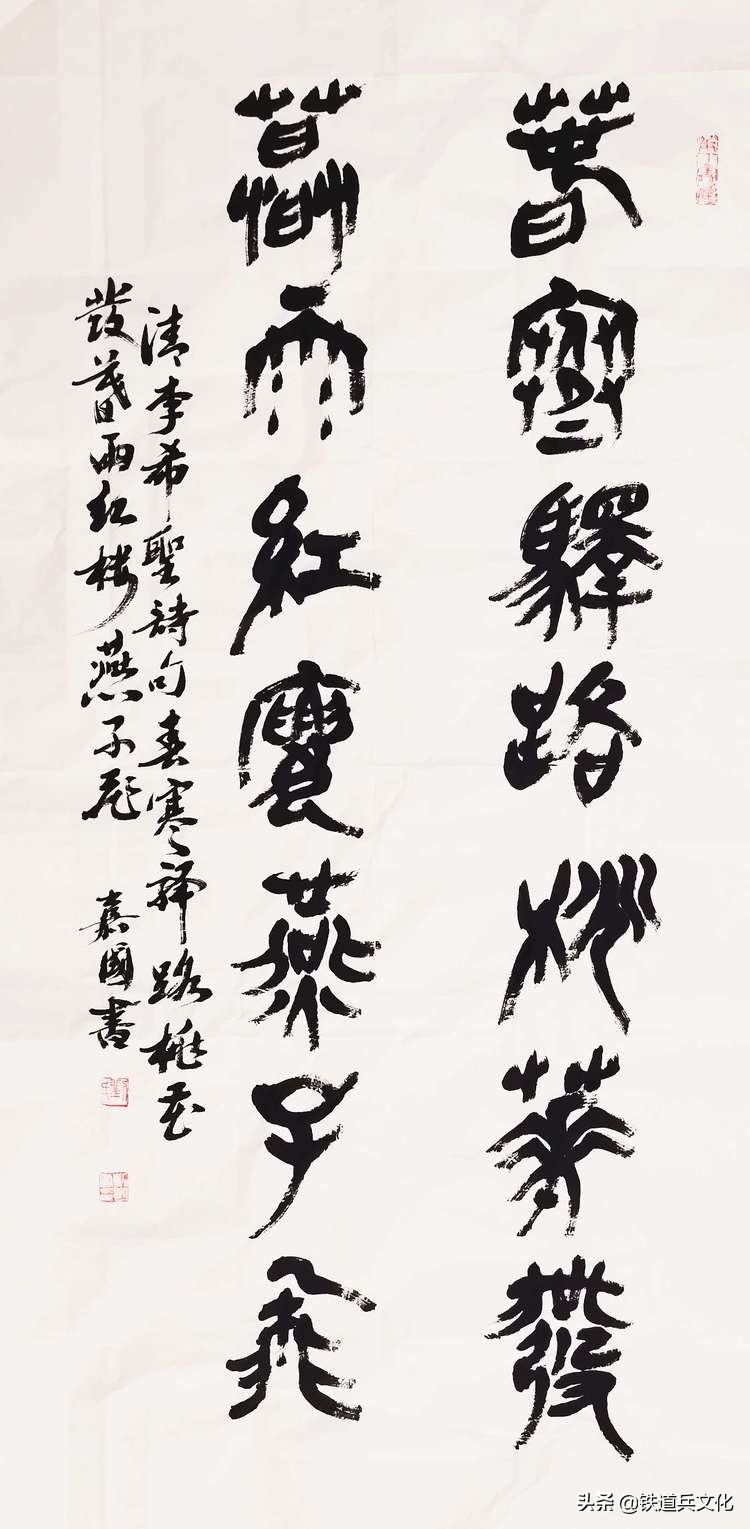 萅寒驛路桃華發
暮雨紅樓燕子飛
清李希聖詩句春寒驛路桃花
發暮雨紅樓燕子飛 嘉國書
头条 @铁道兵文化